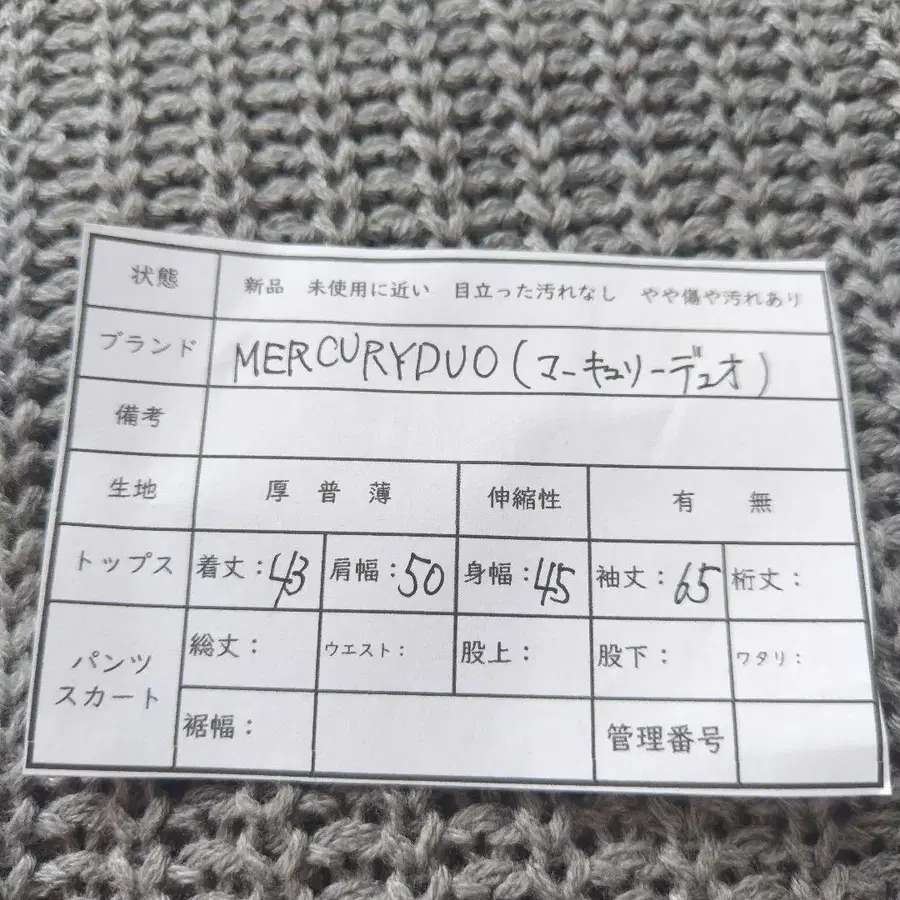 状態 新品 未使用に近い 目立った汚れなし やや傷や汚れあり
ブランド MERCURYDUO(マーキュリーデュオ)
備考
生地 厚 普 薄 伸縮性 有 無
トップス 着丈:43 肩幅:50 身幅:45 袖丈:65 裄丈:
パンツ スカート 総丈: ウエスト: 股上: 股下: ワタリ:
裾幅: 管理番号